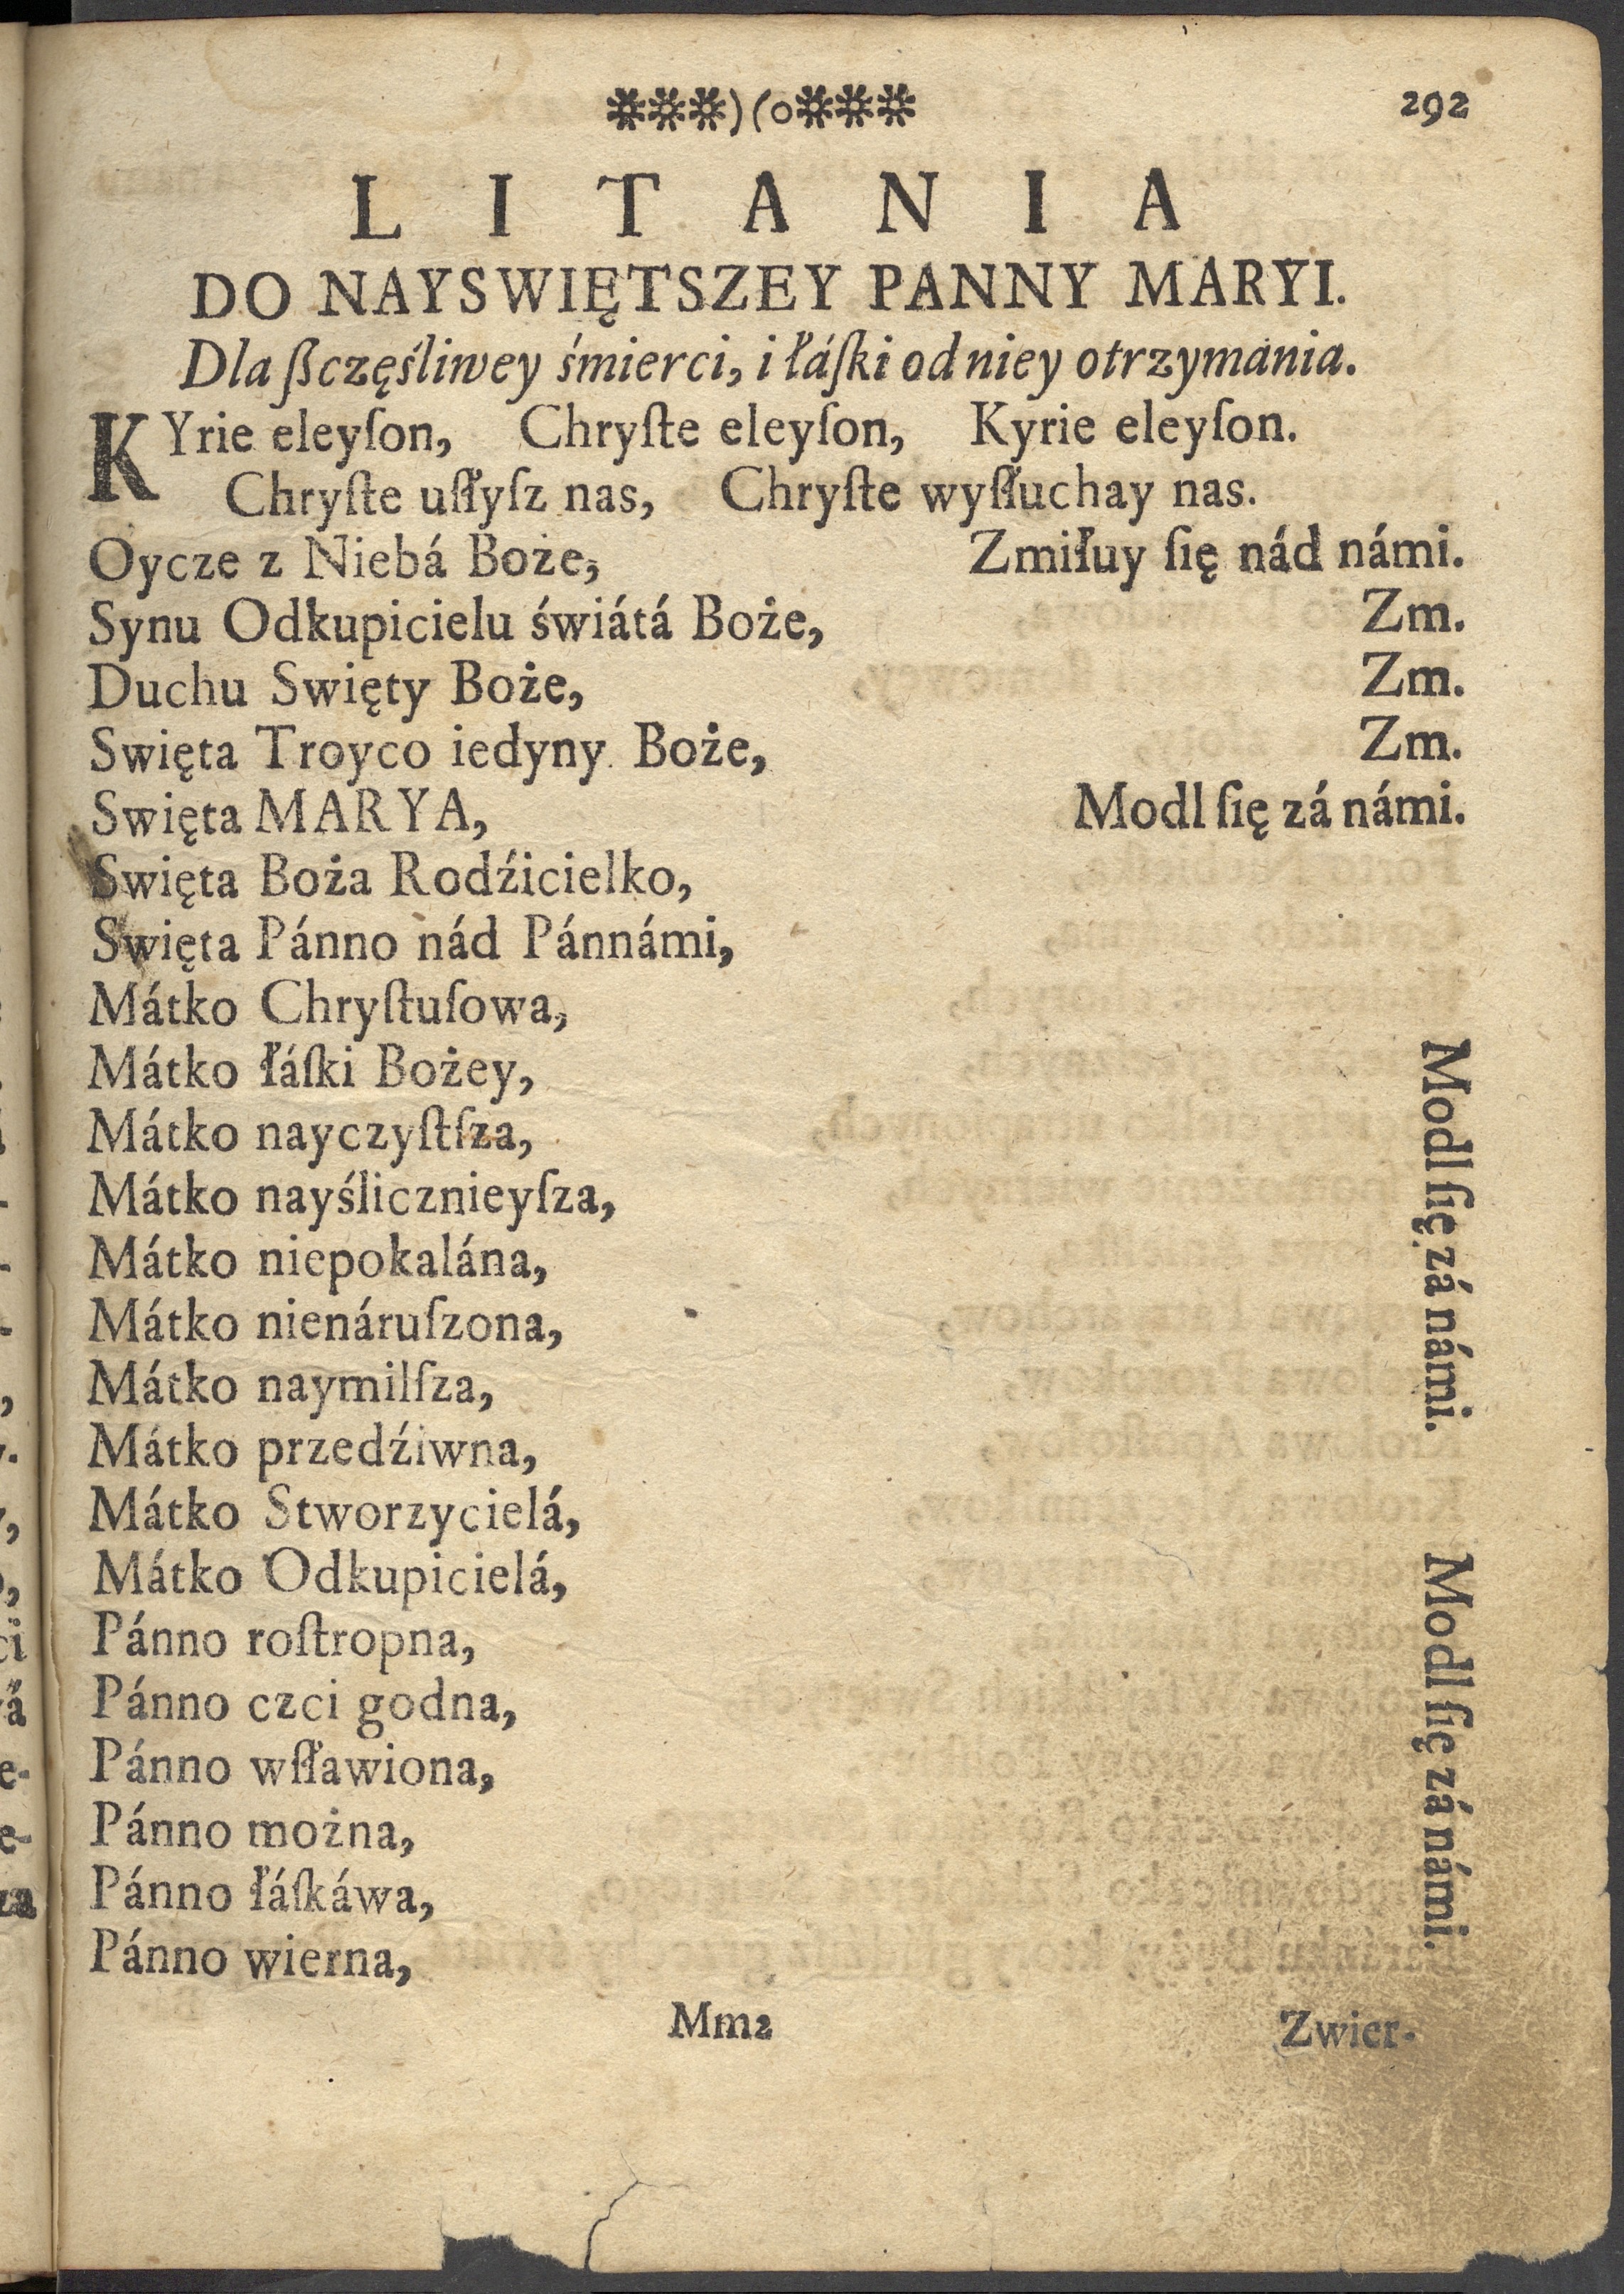 ***)(o*** 292
L I T A N I A
DO NAYSWIĘTSZEY PANNY MARYI.
Dla ßczęśliwey śmierci, i łáſki od niey otrzymánia.
KYrie eleyſon, Chryſte eleyſon, Kyrie eleyſon.
Chryſte uſłyſz nas, Chryſte wyſłuchay nas.
Oycze z Niebá Boże, Zmiłuy ſię nád námi.
Synu Odkupicielu świátá Boże, Zm.
Duchu Swięty Boże, Zm.
Swięta Troyco iedyny Boże, Zm.
Swięta MARYA, Modl ſię zá námi.
Swięta Boża Rodźicielko,
Swięta Pánno nád Pánnámi,
Mátko Chryſtuſowa,
Mátko łáſki Bożey,
Mátko nayczyſtſza,
Mátko nayślicznieyſza,
Mátko niepokalána,
Mátko nienáruſzona,
Mátko naymilſza,
Mátko przedźiwna,
Mátko Stworzycielá,
Mátko Odkupicielá,
Pánno roſtropna,
Pánno czci godna,
Pánno wſławiona,
Pánno można,
Pánno łáſkáwa,
Pánno wierna,
Modl ſię zá námi. Modl ſię zá námi.
Mm2 Zwier-